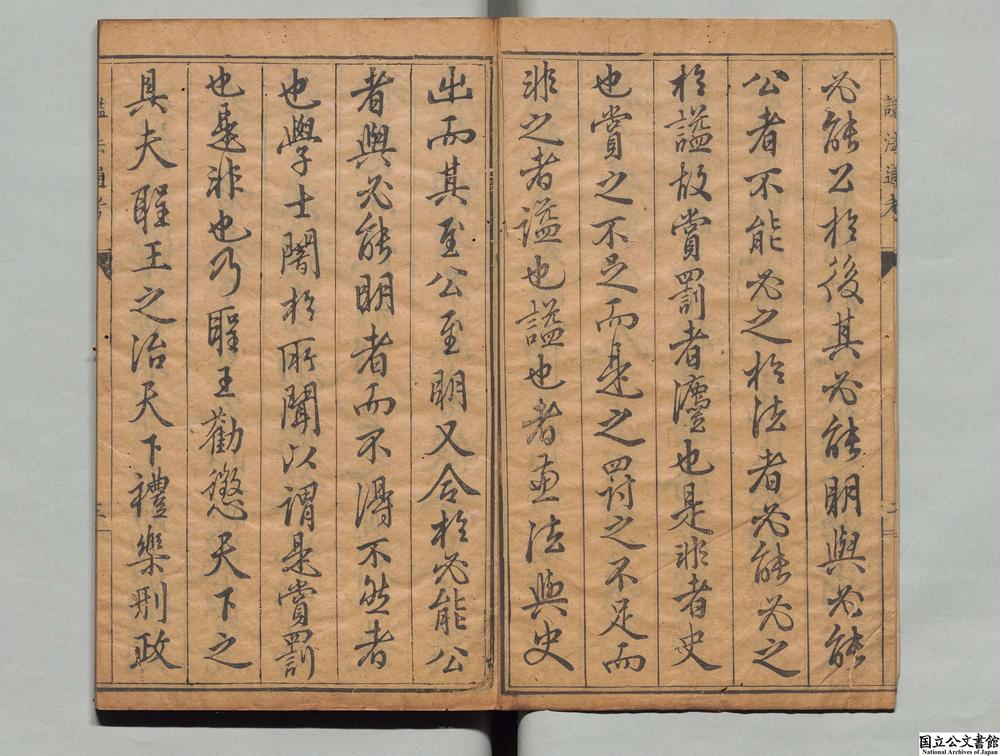 必能公於後其必能明與必能
公者不能必之於法者必能必之
於謚故賞罰者灋也是非者史
也賞之不足而是之罰之不足而
非之者謚也謚也者兼法與史
出而其至公至明又合於必能公
者與必能明者而不得不然者
也學士闇於所聞以謂是賞罰
也是非也乃聖王勸懲天下之
具夫聖王之治天下禮樂刑政
謚法通考
二
謚法通考
三
国立公文書館
National Archives of Japan